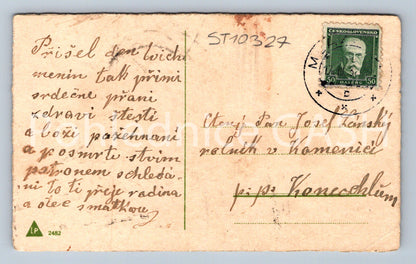 Přišel den tvich
menin tak přimi
srdečne přani
zdravi štesti
a boži požehnani
a posmrti stvim
patronem schleda
ni to ti přeje rodina
a otec smatkou
ST10327
ČESKOSLOVENSKO
50 HALÉŘŮ 50
M
Ctěný Pan Josef
rolnik v Kamenici
p: p: Konecchlum
LP 2482